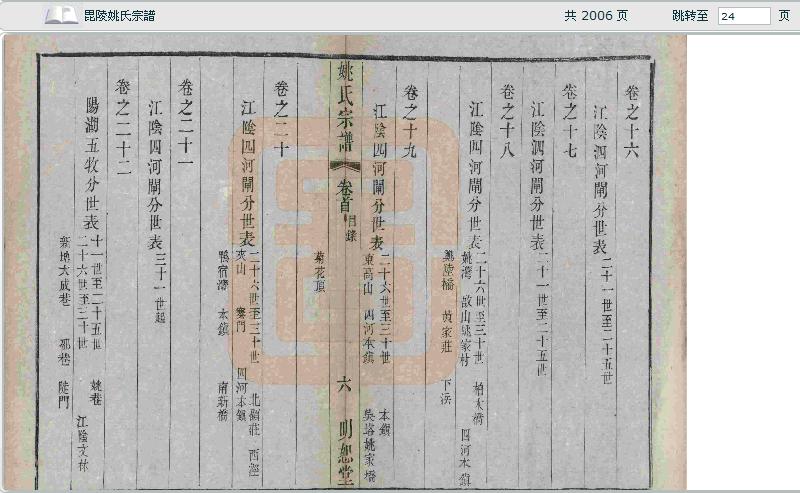 毘陵姚氏宗譜
共 2006 页
跳转至 24 页
卷之十六
江陰泗河閘分世表 二十一世至二十五世
卷之十七
江陰泗河閘分世表 二十一世至二十五世
卷之十八
江陰四河閘分世表 二十六世至三十世 柏木橋
姚灣 故山姚家村 四河本鎮
黃家莊 下浜
卷之十九
江陰四河閘分世表 二十六世至三十世 本鎮
東高山 四河本鎮 吳塔姚家橋
姚氏宗譜 卷首 目錄 六 明恕堂
菊花頂
卷之二十
江陰四河閘分世表 二十六世至三十世 北顧莊 西涇
夾山 寨門 四河本鎮
鴨宿灣 本鎮 南新橋
卷之二十一
江陰四河閘分世表 三十一世起
卷之二十二
陽湖五牧分世表 十一世至二十五世 姚巷
二十六世至三十世 江陰文林
大成巷 陡門